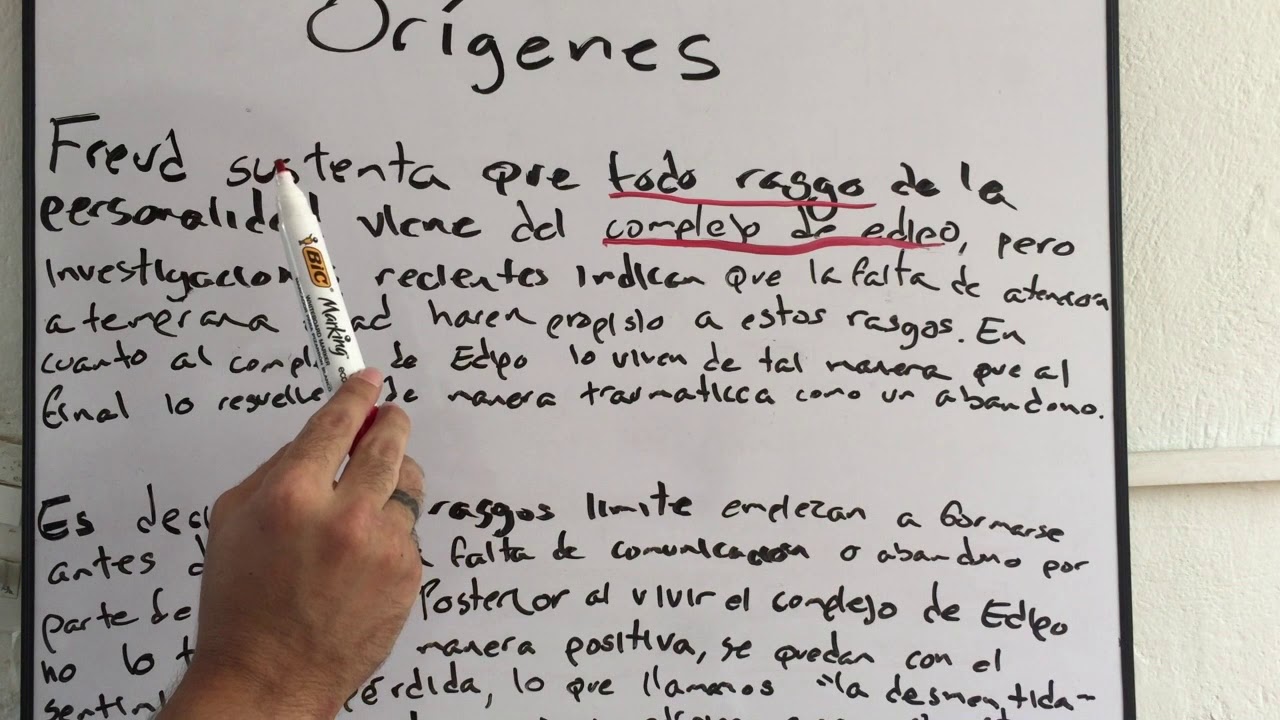 Orígenes
Freud sustenta que todo rasgo de la
personalidad viene del complejo de edipo, pero
investigacion recientes indican que la falta de atencion
a temprana ad hacen propisio a estos rasgos. En
cuanto al compl de Edipo lo viven de tal manera que al
final lo resuelve de manera traumatica como un abandono.
Es dec rasgos limite empiezan a formarse
antes d falta de comunicacion o abandono por
parte de Posterior al vivir el complejo de Edipo
no lo t manera positiva, se quedan con el
sentim érdida, lo que llamanos "la desmentida-
BIC
Marking